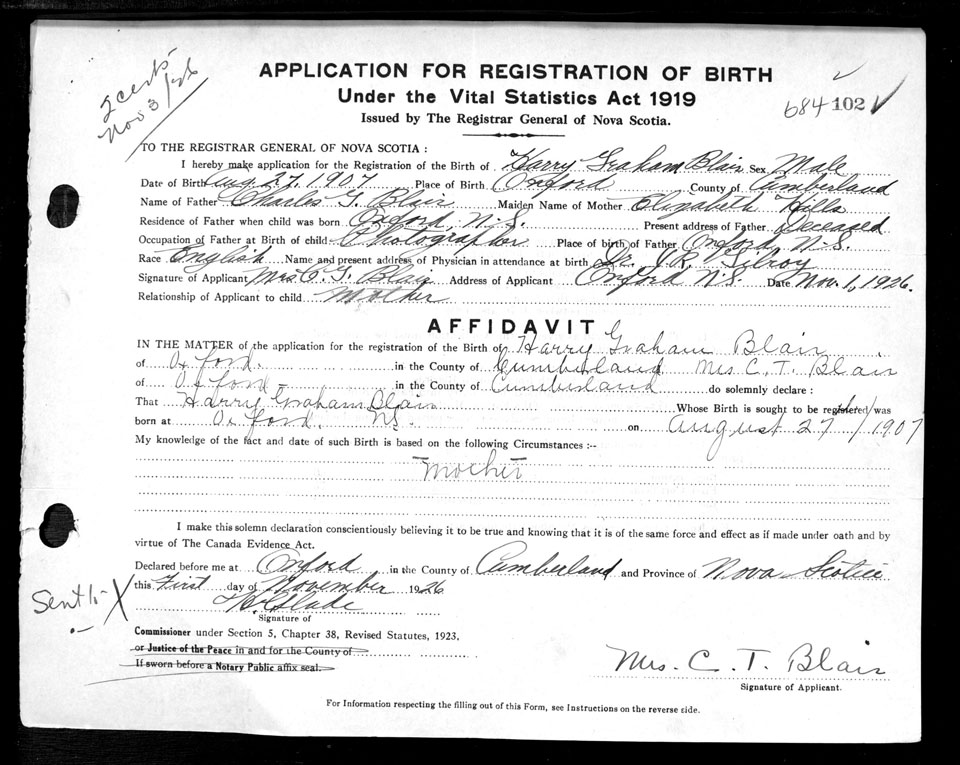 2 certs
Nov 3/26
APPLICATION FOR REGISTRATION OF BIRTH
Under the Vital Statistics Act 1919
Issued by The Registrar General of Nova Scotia.
684 102
TO THE REGISTRAR GENERAL OF NOVA SCOTIA :
I hereby make application for the Registration of the Birth of Harry Graham Blair Sex Male
Date of Birth Aug. 27, 1907 Place of Birth Oxford County of Cumberland
Name of Father Charles T. Blair Maiden Name of Mother Elizabeth Hills
Residence of Father when child was born Oxford, N.S. Present address of Father Deceased
Occupation of Father at Birth of child Photographer Place of birth of Father Oxford, N.S.
Race English Name and present address of Physician in attendance at birth Dr. J.R. Gilroy
Signature of Applicant Mrs C. T. Blair Address of Applicant Oxford N.S. Date Nov. 1, 1926.
Relationship of Applicant to child Mother
AFFIDAVIT
IN THE MATTER of the application for the registration of the Birth of Harry Graham Blair
of Oxford. in the County of Cumberland Mrs C. T. Blair
of Oxford in the County of Cumberland do solemnly declare :
That Harry Graham Blair Whose Birth is sought to be registered was
born at Oxford. NS. on August 27th/1907
My knowledge of the fact and date of such Birth is based on the following Circumstances :--
Mother
I make this solemn declaration conscientiously believing it to be true and knowing that it is of the same force and effect as if made under oath and by
virtue of The Canada Evidence Act.
Declared before me at Oxford in the County of Cumberland and Province of Nova Scotia
this First day of November 1926
Slade
Signature of
Sent
Commissioner under Section 5, Chapter 38, Revised Statutes, 1923,
or Justice of the Peace in and for the County of
If sworn before a Notary Public affix seal.
Mrs. C. T. Blair
Signature of Applicant.
For Information respecting the filling out of this Form, see Instructions on the reverse side.